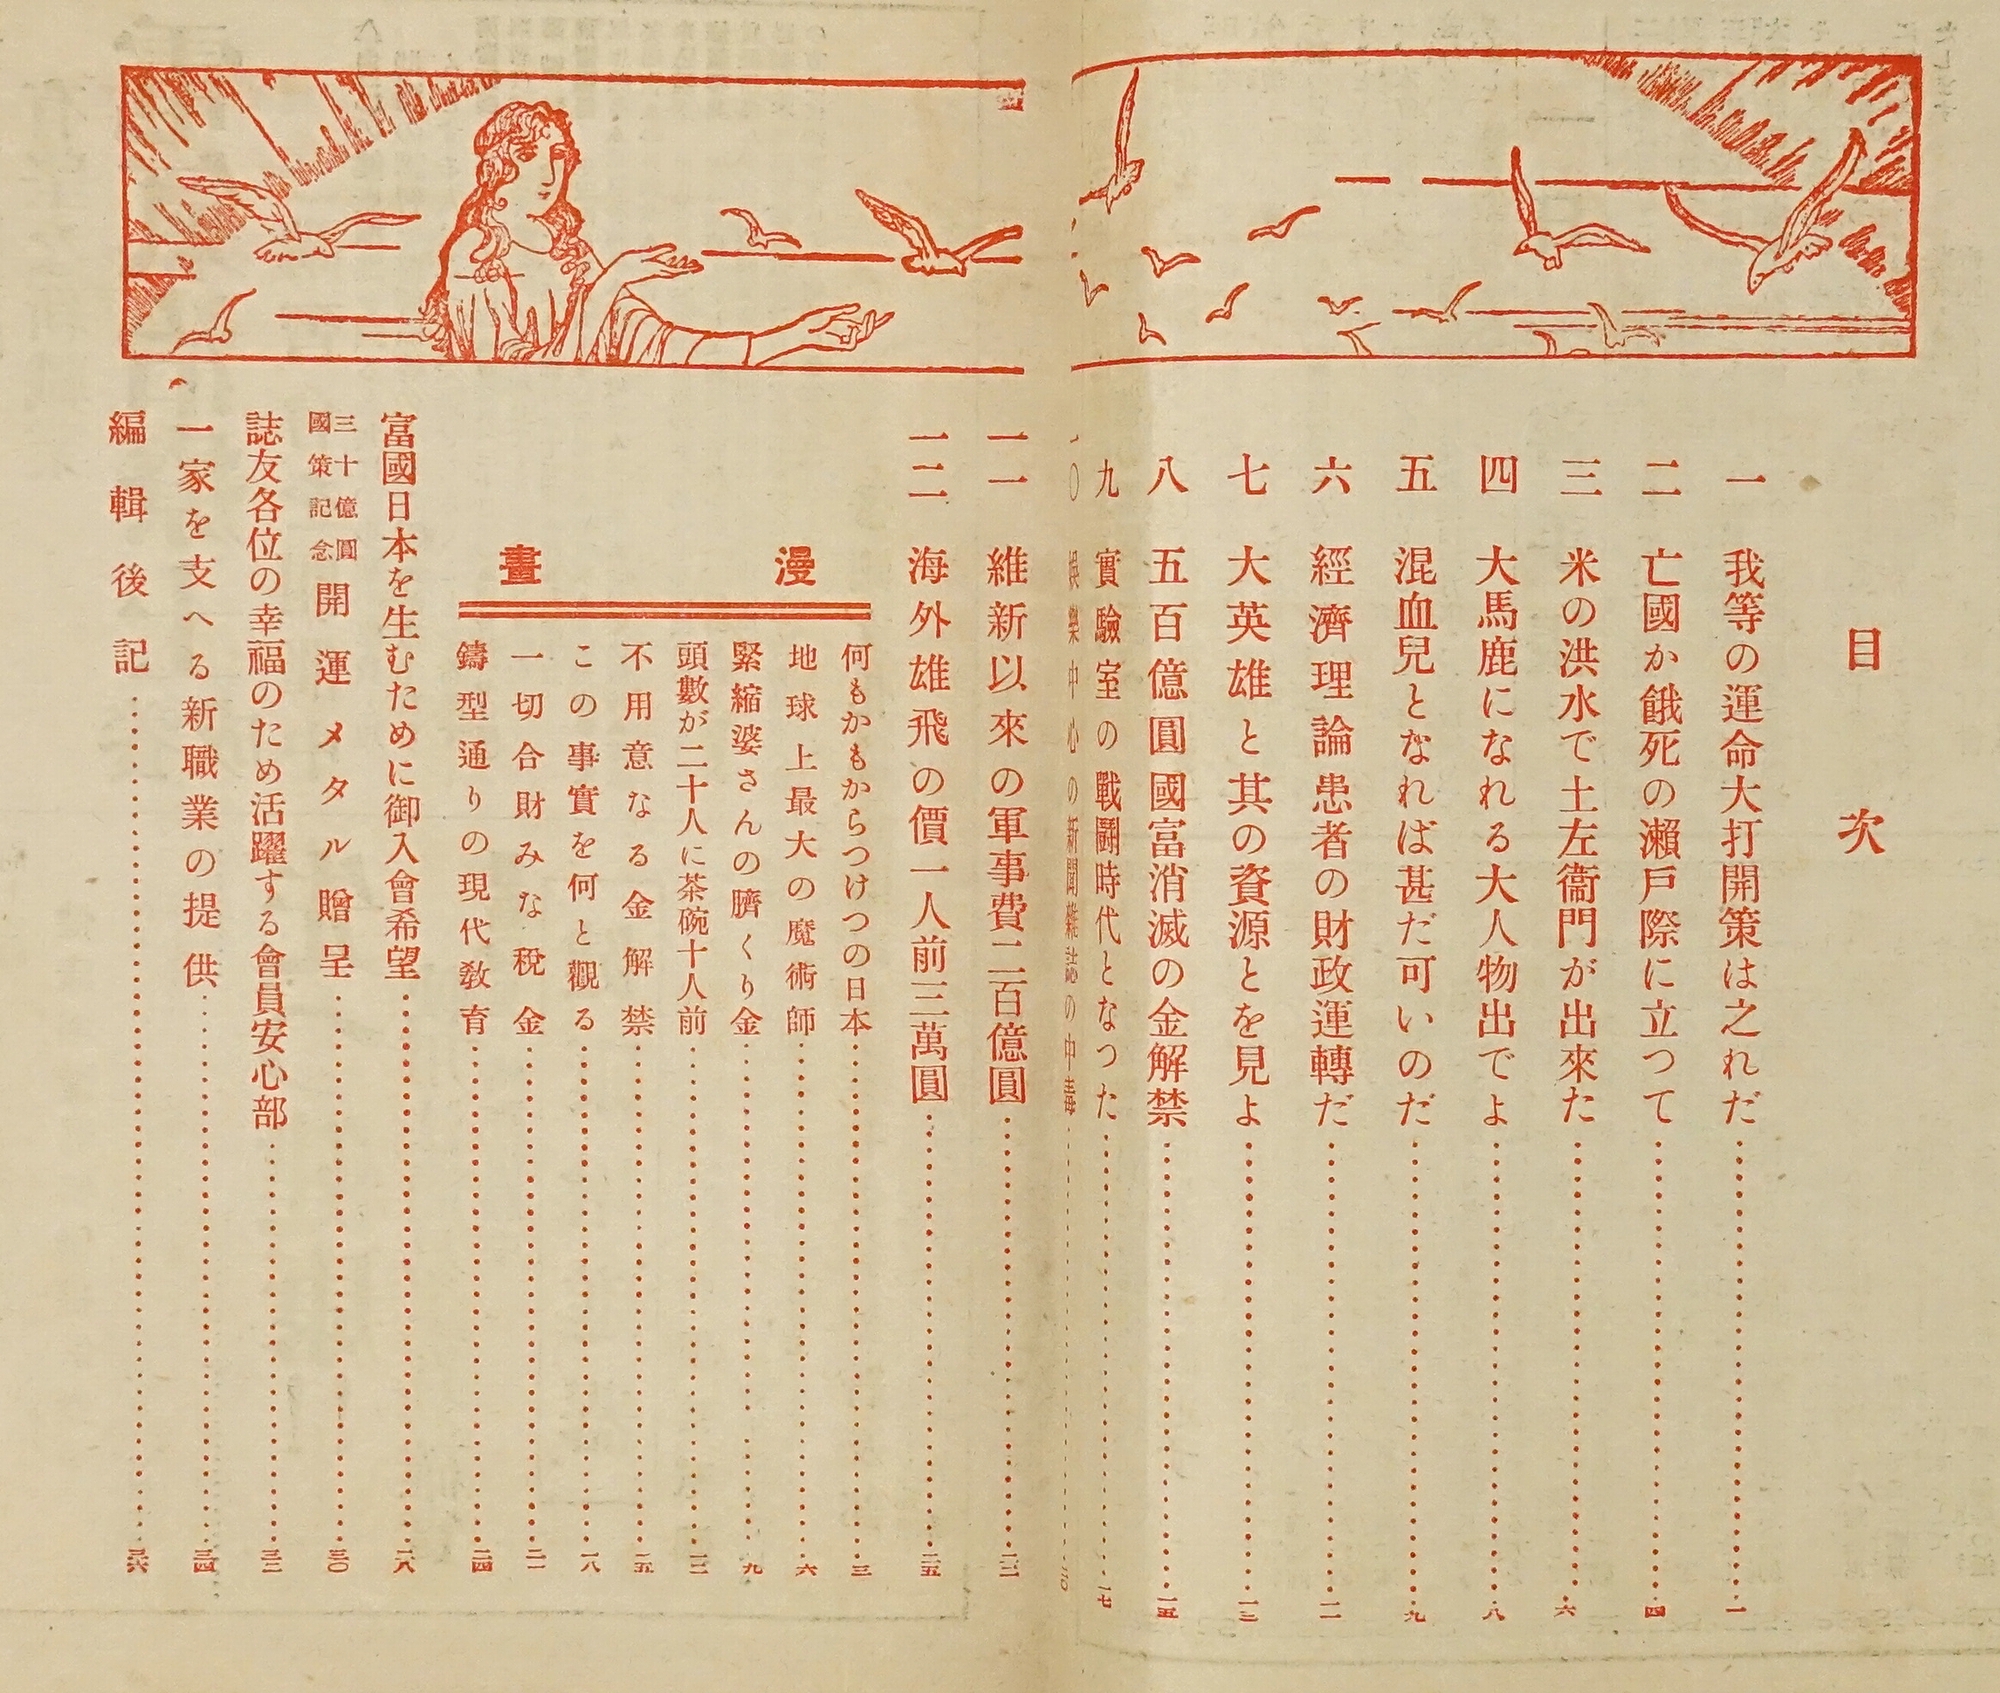 目次
一 我等の運命大打開策は之れだ……一
二 亡國か餓死の瀬戸際に立つて……四
三 米の洪水で土左衞門が出來た……六
四 大馬鹿になれる大人物出でよ……八
五 混血兒となれば甚だ可いのだ……九
六 經濟理論患者の財政運轉だ……一一
七 大英雄と其の資源とを見よ……一三
八 五百億圓國富消滅の金解禁……一五
九 實驗室の戰鬪時代となつた……一七
一〇 娯樂中心の新聞雜誌の中毒……二〇
一一 維新以來の軍事費二百億圓……二二
一二 海外雄飛の價一人前三萬圓……二五
漫畫
何もかもからつけつの日本……三
地球上最大の魔術師……六
緊縮婆さんの臍くり金……九
頭數が二十人に茶碗十人前……一二
不用意なる金解禁……一五
この事實を何と觀る……一八
一切合財みな稅金……二一
鑄型通りの現代敎育……二四
富國日本を生むために御入會希望……二八
三十億圓國策記念開運メタル贈呈……三〇
誌友各位の幸福のため活躍する會員安心部……三二
一家を支へる新職業の提供……三四
編輯後記……三六